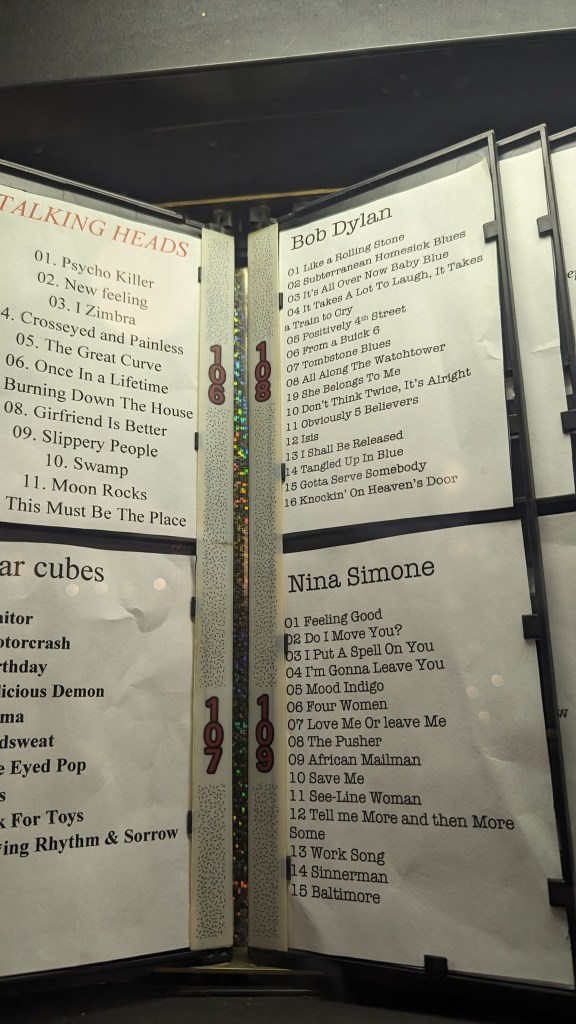 TALKING HEADS
01. Psycho Killer
02. New feeling
03. I Zimbra
4. Crosseyed and Painless
05. The Great Curve
06. Once In a Lifetime
Burning Down The House
08. Girfriend Is Better
09. Slippery People
10. Swamp
11. Moon Rocks
This Must Be The Place
106
ar cubes
nitor
otorcrash
rthday
licious Demon
ma
dsweat
e Eyed Pop
s
k For Toys
ing Rhythm & Sorrow
107
108
Bob Dylan
01 Like a Rolling Stone
02 Subterranean Homesick Blues
03 It's All Over Now Baby Blue
04 It Takes A Lot To Laugh, It Takes
a Train to Cry
05 Positively 4th Street
06 From a Buick 6
07 Tombstone Blues
08 All Along The Watchtower
19 She Belongs To Me
10 Don't Think Twice, It's Alright
11 Obviously 5 Believers
12 Isis
13 I Shall Be Released
14 Tangled Up In Blue
15 Gotta Serve Somebody
16 Knockin' On Heaven's Door
109
Nina Simone
01 Feeling Good
02 Do I Move You?
03 I Put A Spell On You
04 I'm Gonna Leave You
05 Mood Indigo
06 Four Women
07 Love Me Or leave Me
08 The Pusher
09 African Mailman
10 Save Me
11 See-Line Woman
12 Tell me More and then More
Some
13 Work Song
14 Sinnerman
15 Baltimore